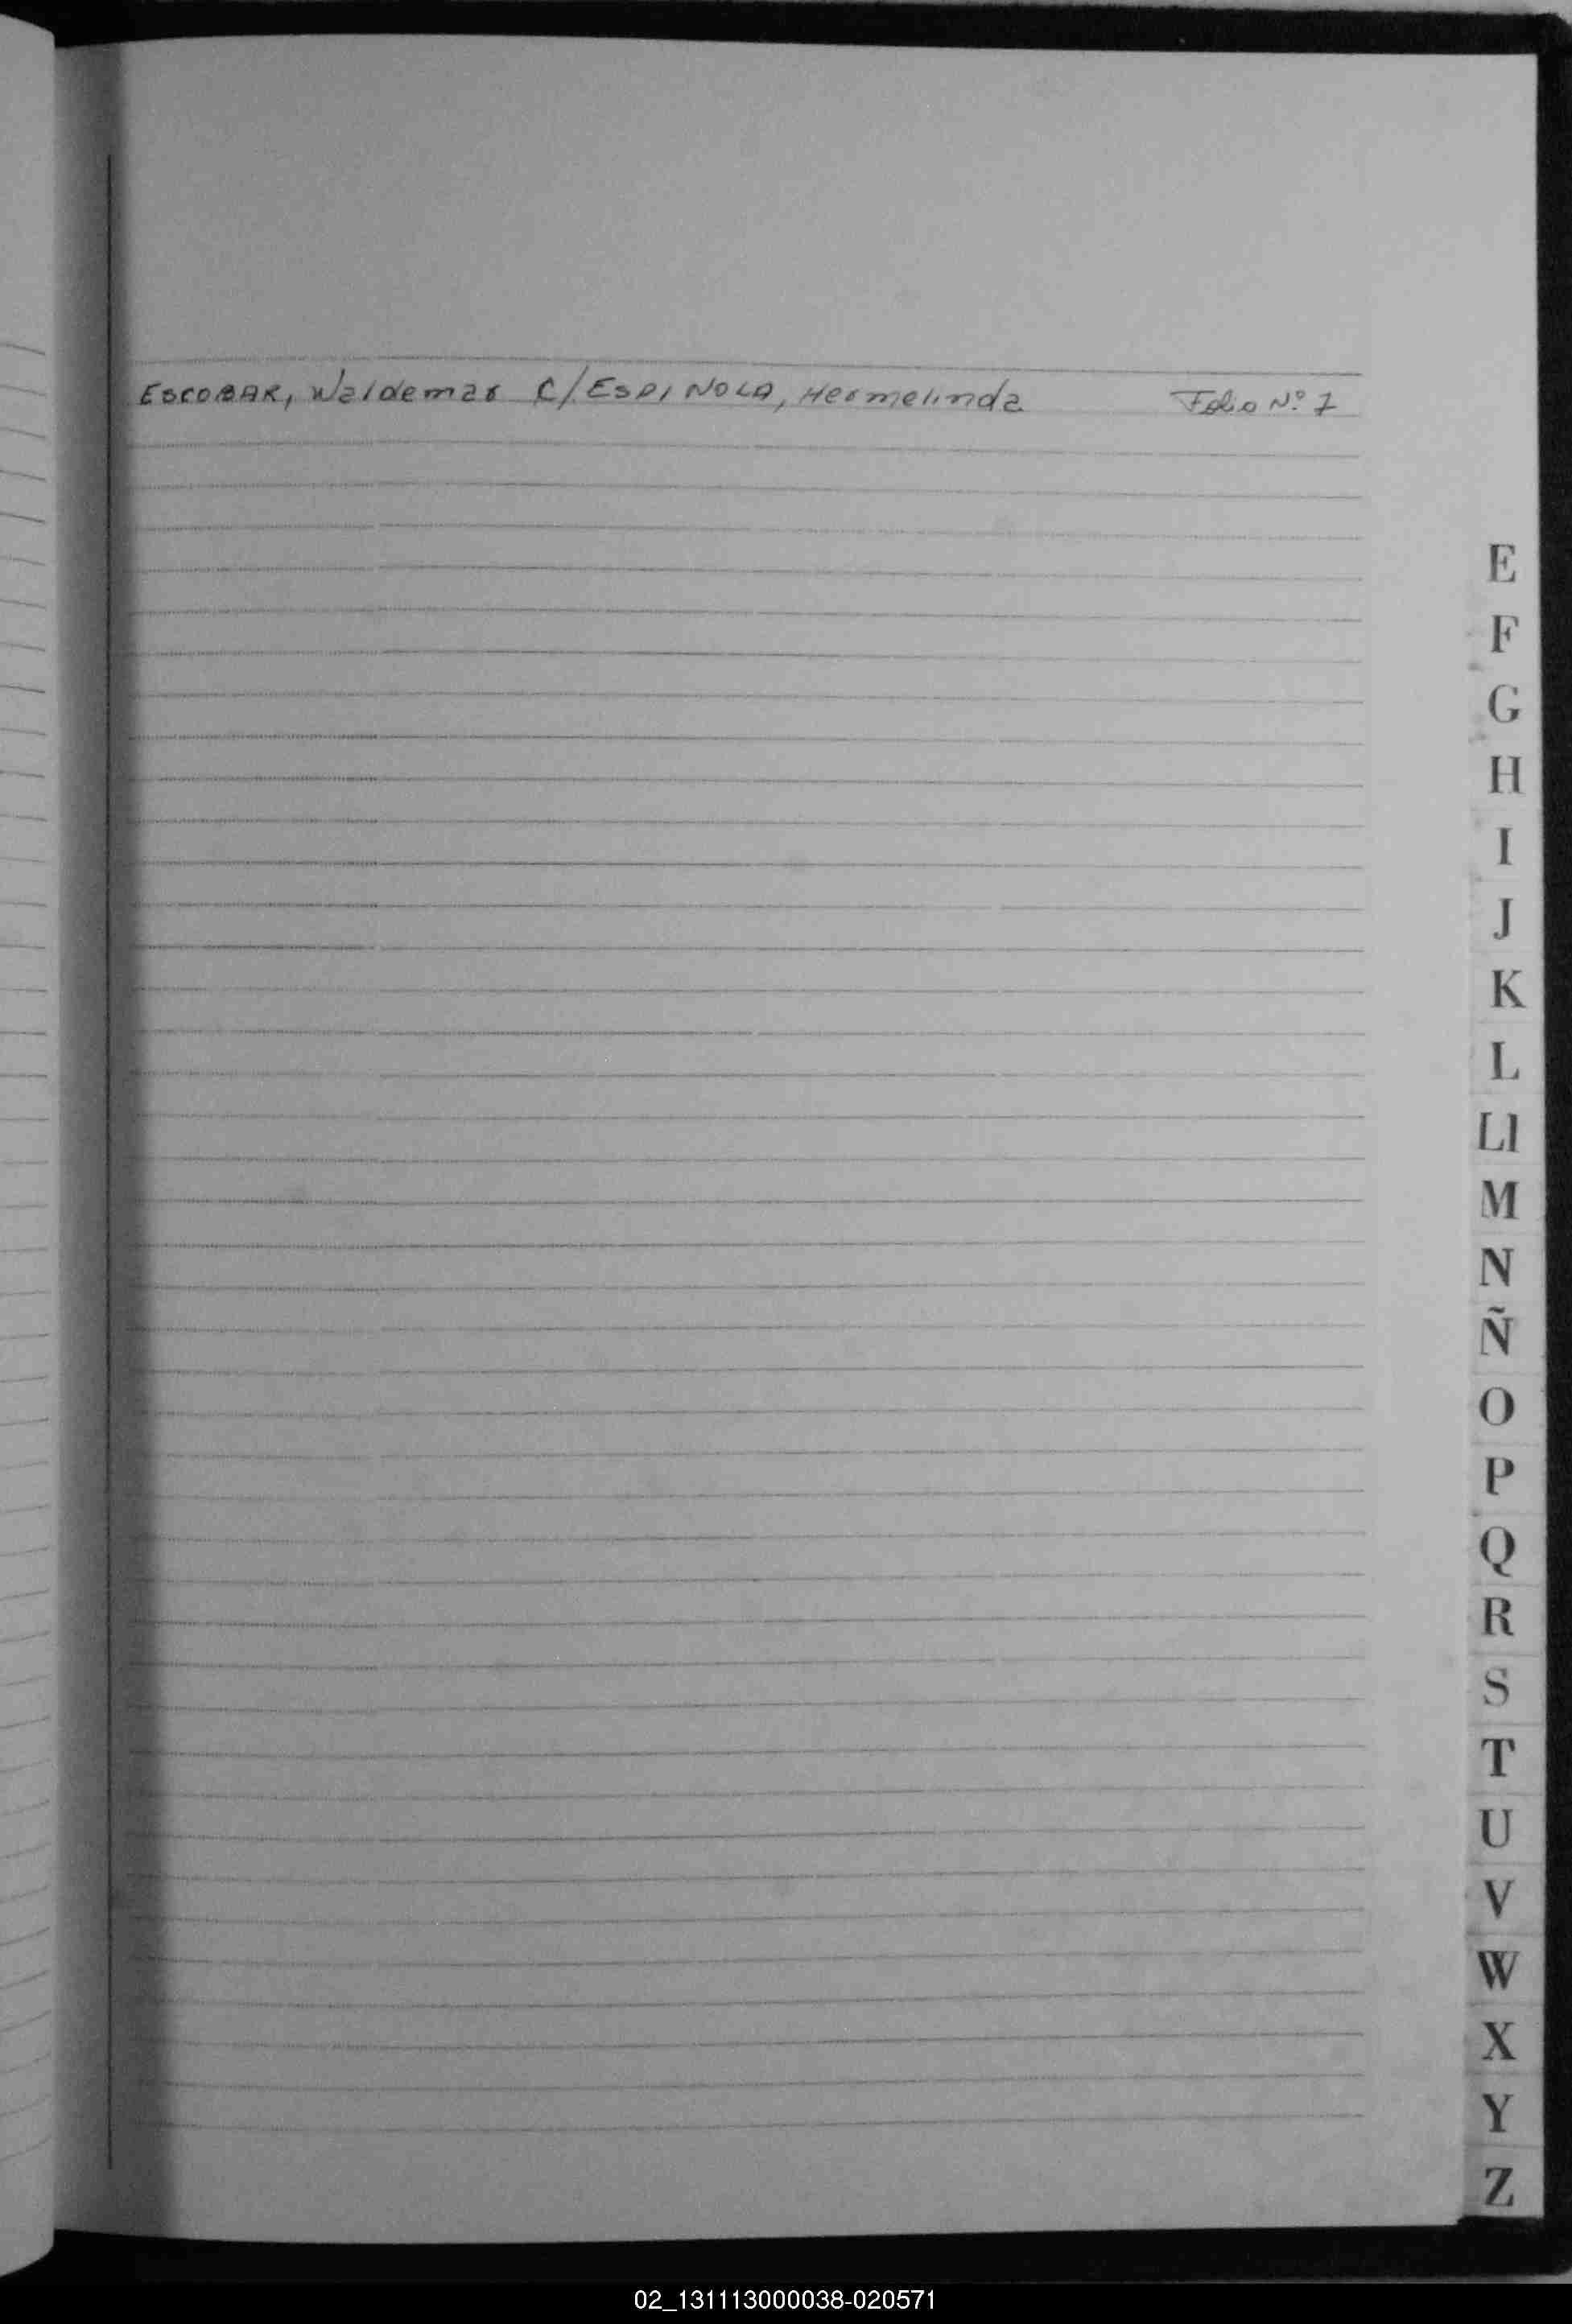 ESCOBAR, Waldemar C/ESPINOLA, Hermelinda Folio Nº 7
E
F
G
H
I
J
K
L
Ll
M
N
Ñ
O
P
Q
R
S
T
U
V
W
X
Y
Z
02_131113000038-020571